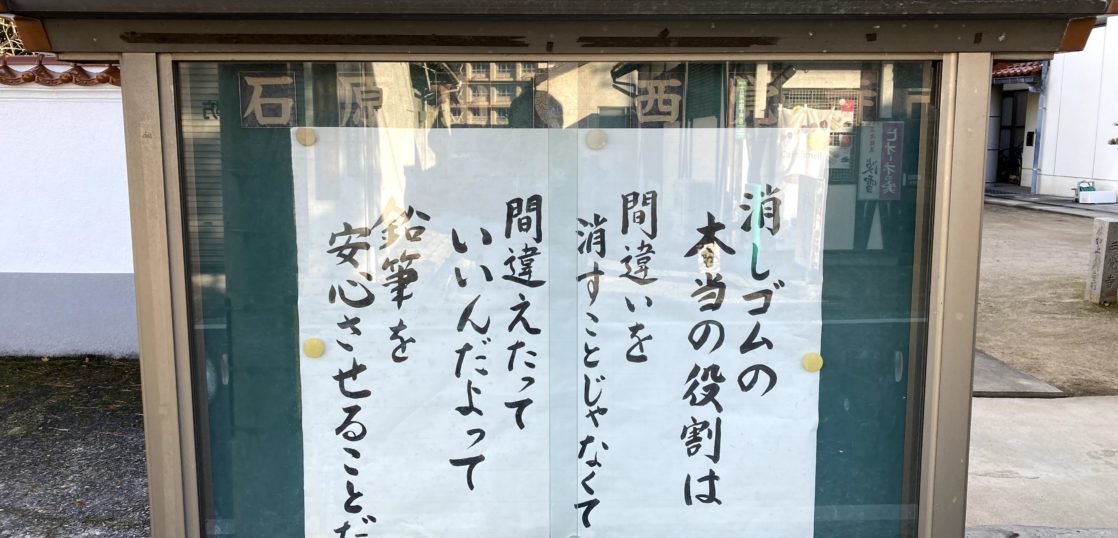 消しゴムの
本当の役割は
間違いを
消すことじゃなくて
間違えたって
いいんだよって
鉛筆を
安心させることだ
石原
西